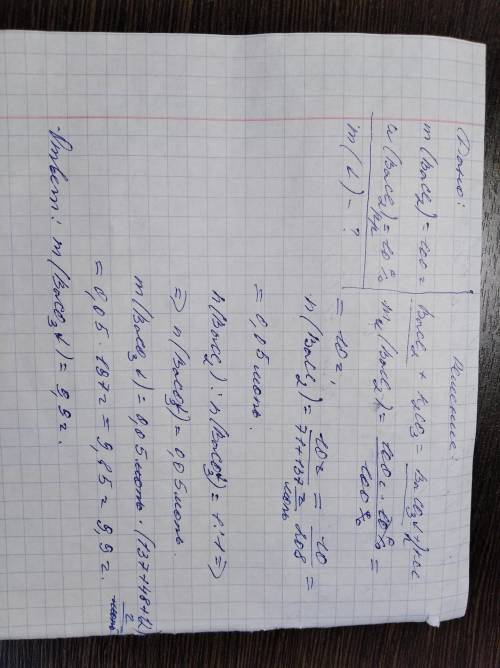 Дано:
m(BaCl₂) = 100 г
ω(BaCl₂)рр = 10%
m(↓) - ?
Решение:
BaCl₂ + K₂CO₃ = BaCO₃↓ + 2KCl
mч(BaCl₂) = 100 г · 10% / 100% =
= 10 г;
n(BaCl₂) = 10 г / 71+137 г/моль = 10 / 208 =
= 0,05 моль.
n(BaCl₂) : n(BaCO₃) = 1 : 1 ⇒
⇒ n(BaCO₃) = 0,05 моль.
m(BaCO₃↓) = 0,05 моль · (137+48+12) г/моль =
= 0,05 · 197 г = 9,85 г = 9,9 г.
Ответ: m(BaCO₃↓) = 9,9 г.